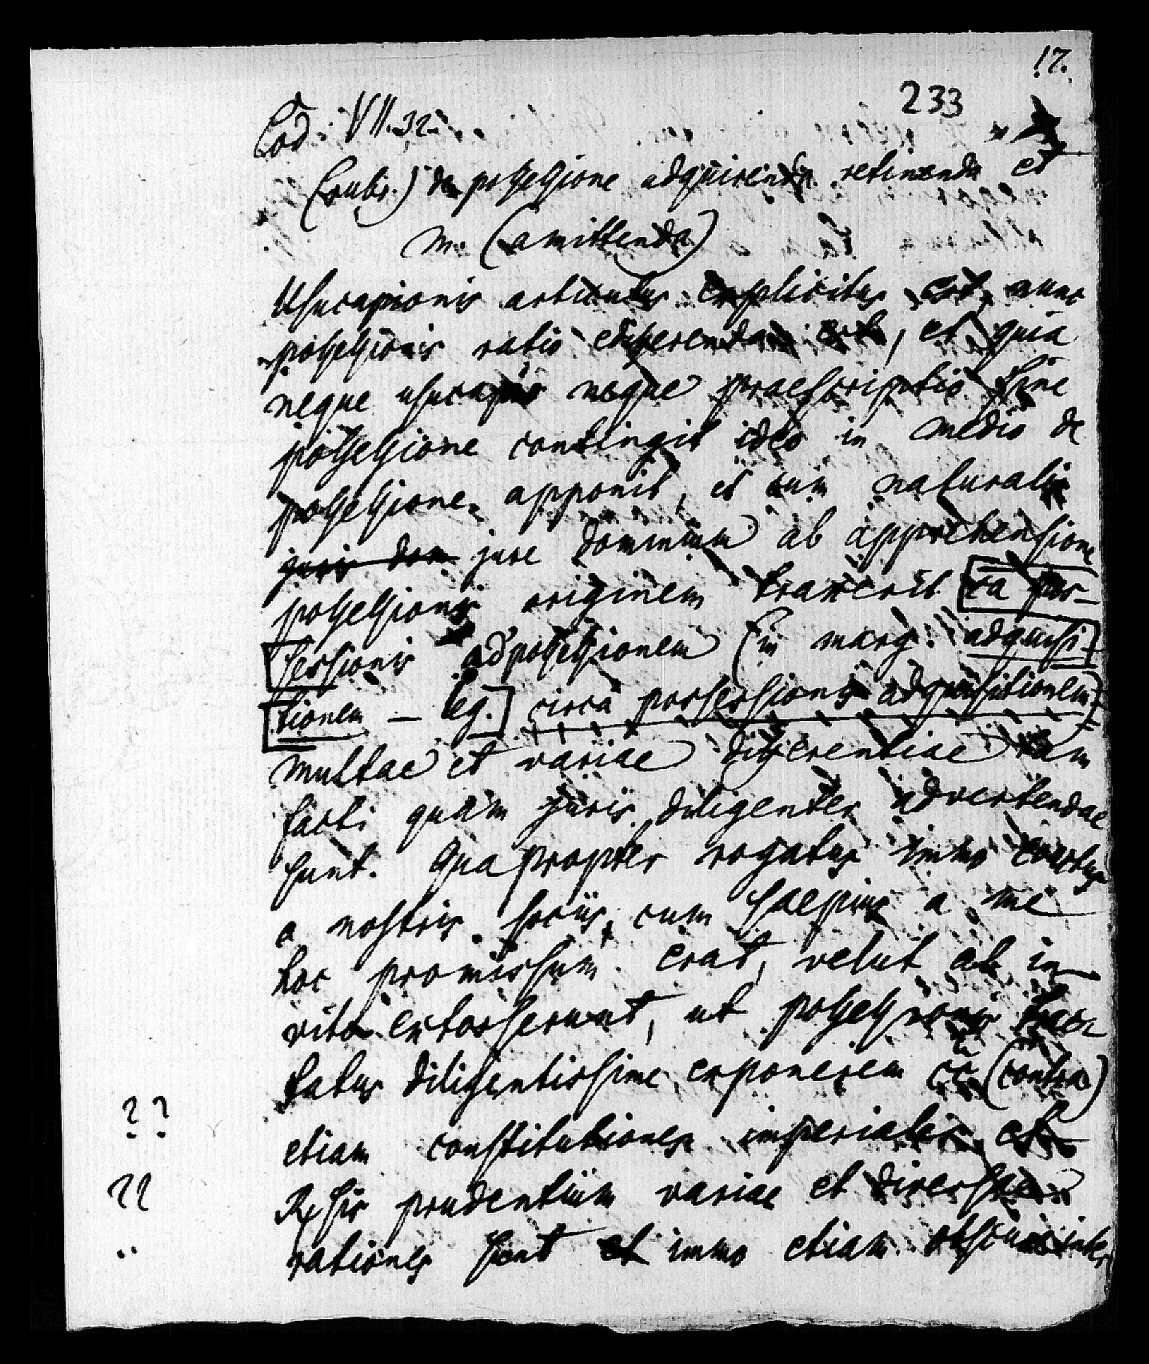 17.
233
Cod. VII. 32.
(rubr.) de possessione adquirenda retinenda et
m. (amittenda)
Usucapionis articulus explicitus est, nunc
possessionis ratio edisserenda est, et quia
neque usucapio neque praescriptio sine
possessione contingit ideo in medio de
possessione apponit, et cum naturali
juris dom jure dominium ab apprehensione
possessionis originem traxerit ca pos-
sessionis adpossessionem (in marg. adquisi-
tionem – leg.] circa possessionis adquisitionem]
multae et variae differentiae tam
facti quam juris diligenter advertendae
sunt. Quapropter rogatus immo coactus
a nostris sociis, cum saepius a me
hoc promissum erat, velut ab in
vito extorserunt, ut possessionis trac
tatus diligentissime exponerem (contra)
etiam constitutiones imperiales et
?? 
prudentium variae et diversae
??
rationes sint et immo etiam